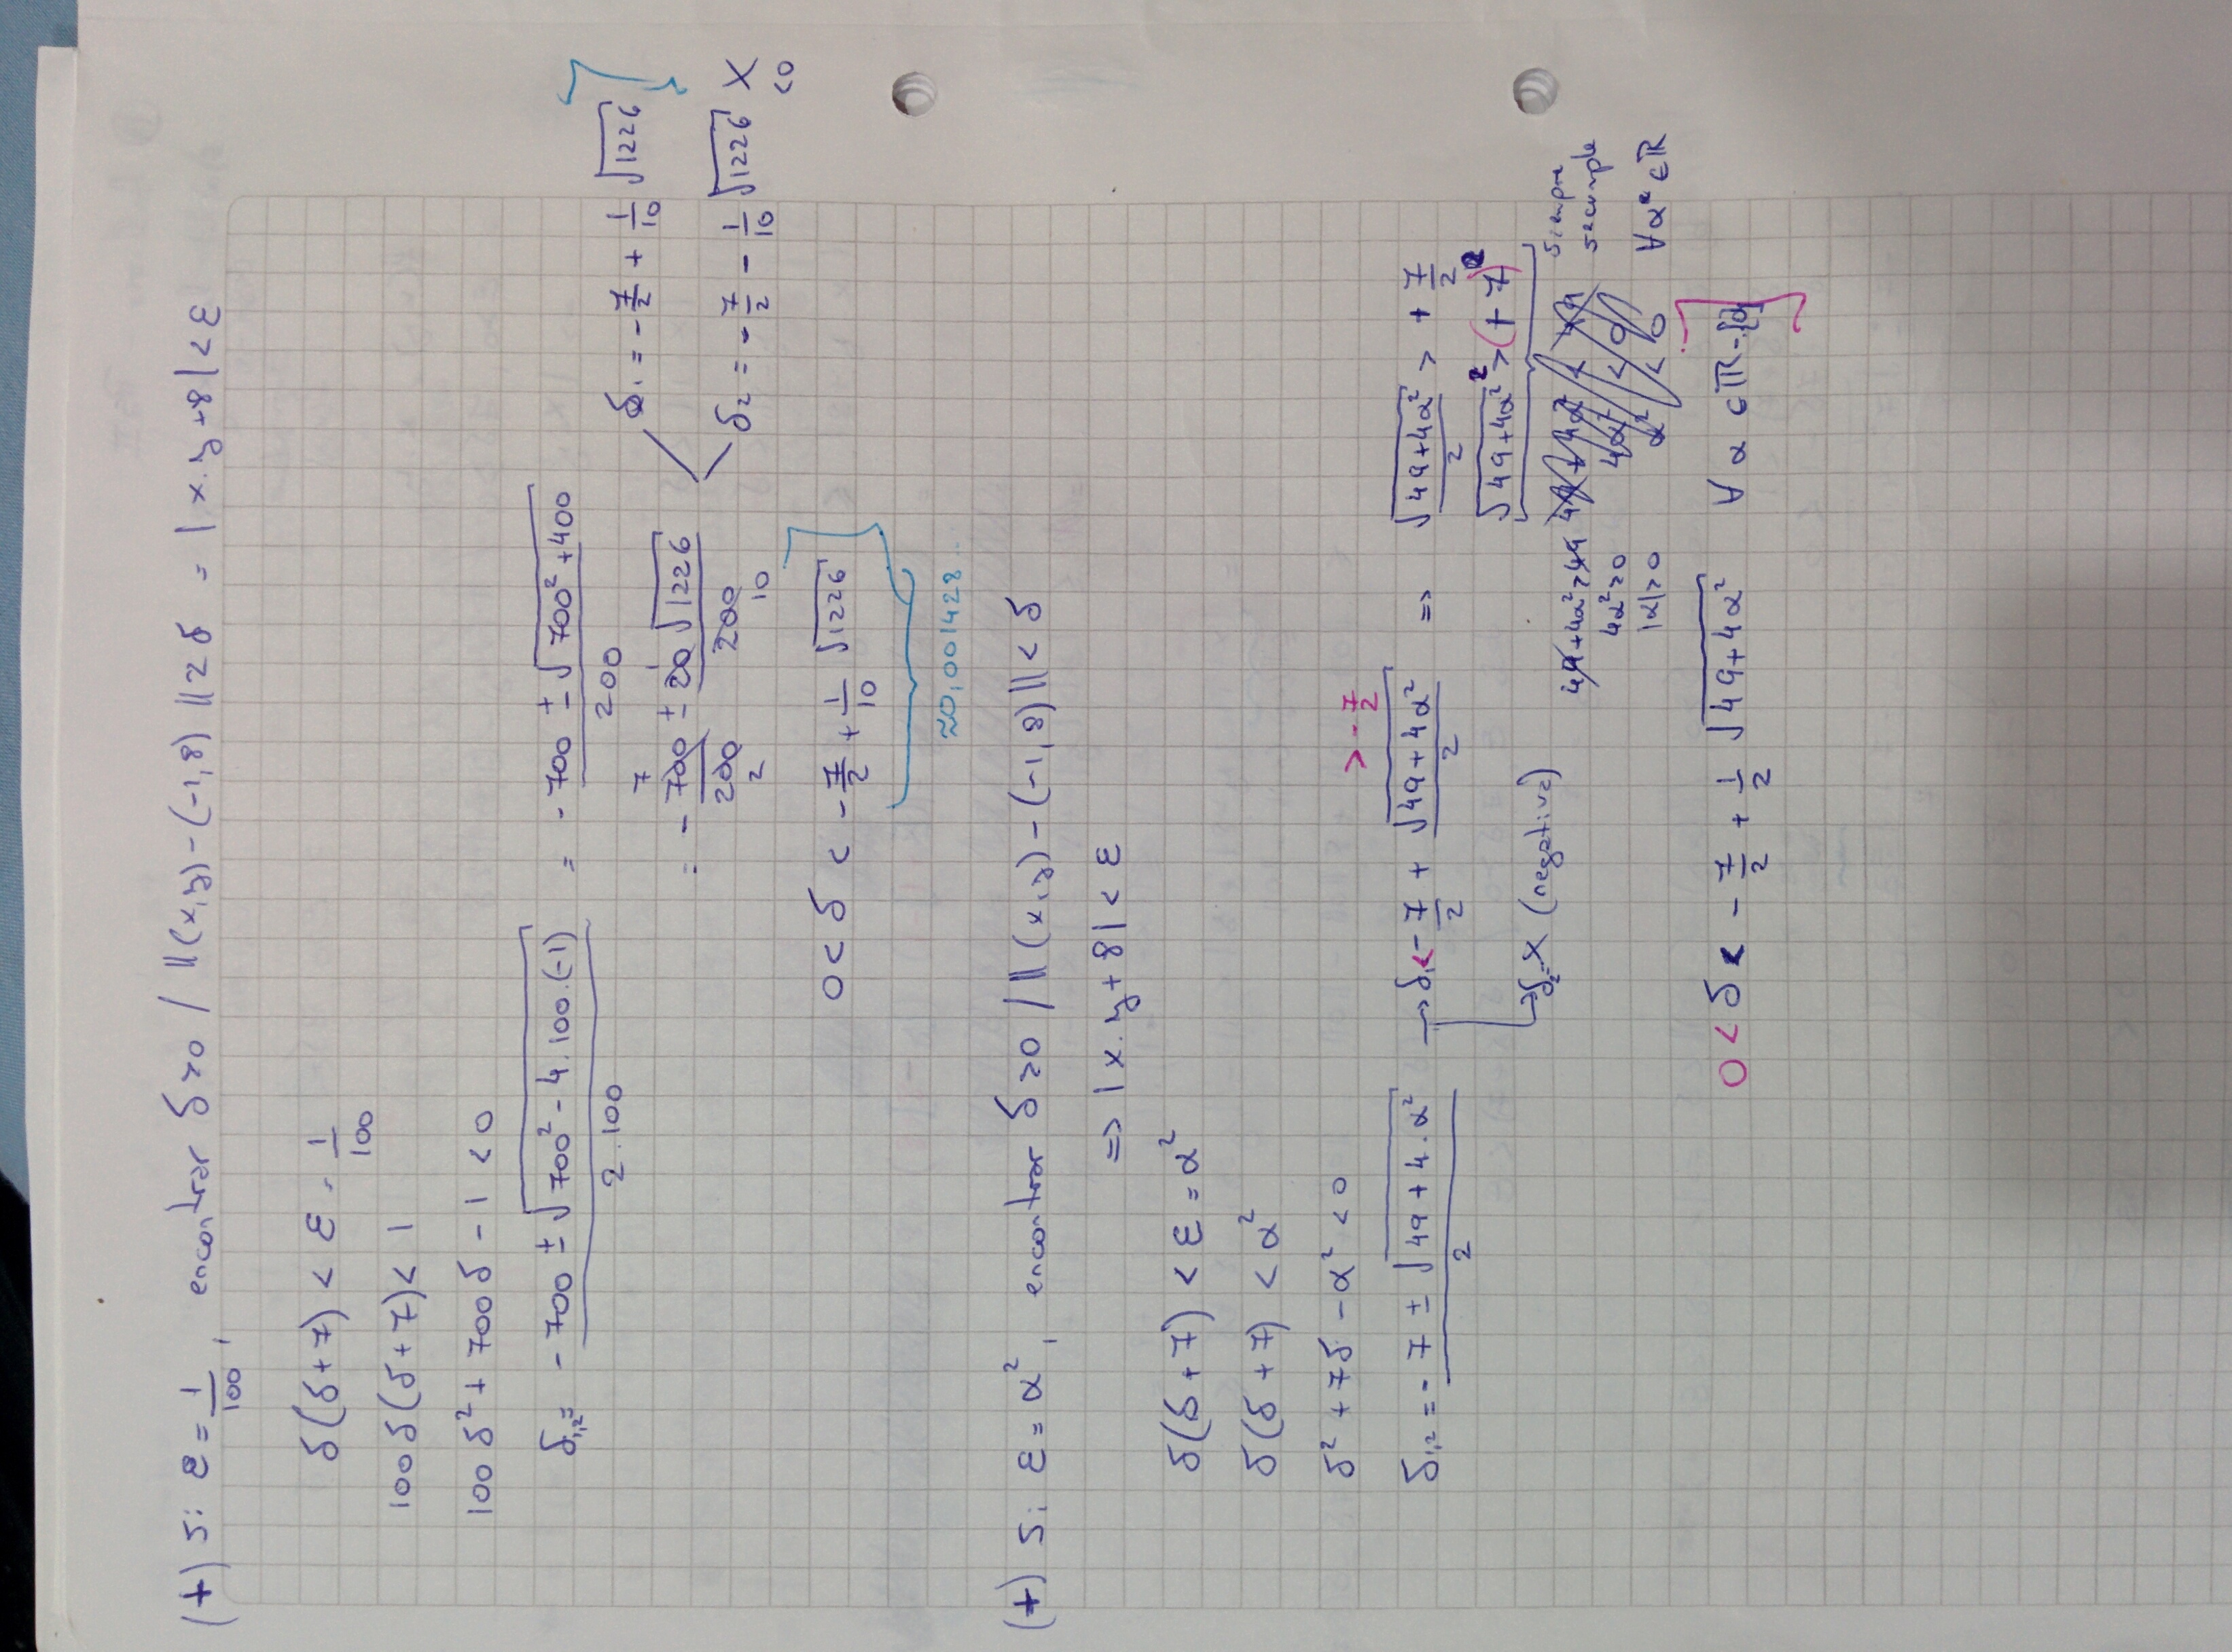 (+) Si ε = 1/100, encontrar δ>0 / ||(x,y)-(-1,8)||<δ = |x.y+8|<ε
δ(δ+7) < ε = 1/100
100δ(δ+7) < 1
100δ² + 700δ - 1 < 0
δ₁,₂ = (-700 ± √(700² - 4.100.(-1)))/(2.100) = (-700 ± √(700² + 400))/200
= -700/200 ± 20√1226/200
7 1
2 10
δ₁ = -7/2 + 1/10 √1226
δ₂ = -7/2 - 1/10 √1226 X
<0
0 < δ < -7/2 + 1/10 √1226
≈0,001428...
(+) Si ε = α², encontrar δ>0 / ||(x,y)-(-1,8)|| < δ
=> |x.y+8| < ε
δ(δ+7) < ε = α²
δ(δ+7) < α²
δ² + 7δ - α² < 0
> -7/2
δ₁,₂ = (-7 ± √(49+4.α²))/2 → δ₁ < -7/2 + √(49+4α²)/2 => √(49+4α²)/2 > +7/2
√(49+4α²)² > (+7)²
→ δ₂ = X (negativa)
49+4α²>49
4α²>0
|α|>0
Siempre
se cumple
∀ α² ∈ ℝ
0 < δ < -7/2 + 1/2 √(49+4α²) ∀ α ∈ ℝ-{0}